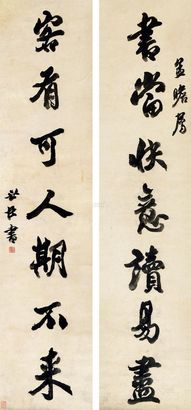 孟瞻屬
書當快意讀易盡
客有可人期不来